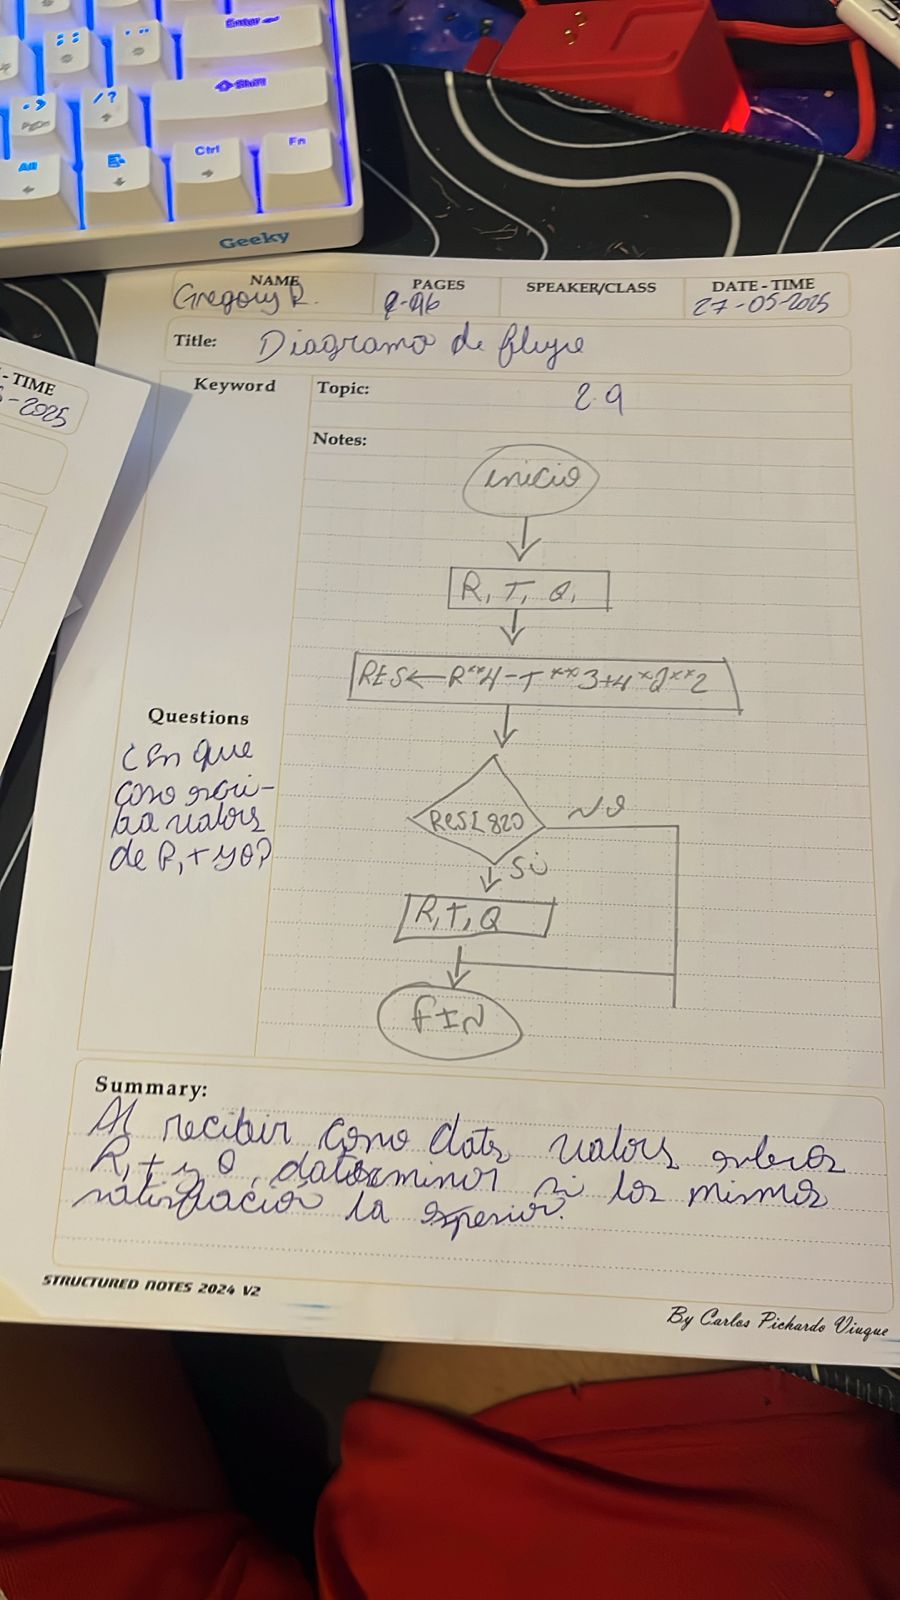 Enter
Shift
PgDn
Alt
Ctrl
Fn
Geeky
- TIME
-2025
NAME
Gregory R.
PAGES
SPEAKER/CLASS
DATE - TIME
27-05-2025
Title: Diagrama de flujo
Keyword
Topic: 2.9
Notes:
inicio
R, T, Q,
RES ← R**4-T**3+4*Q**2
RES< 820
NO
Si
R, T, Q
FIN
Questions
¿En que
caso
valors
de R, t y Q?
Summary:
Al recibir como datos valors enteros
R, t y Q, daterminar si los mismos
satisfación la
STRUCTURED NOTES 2024 V2
By Carlos Pichardo Viuque